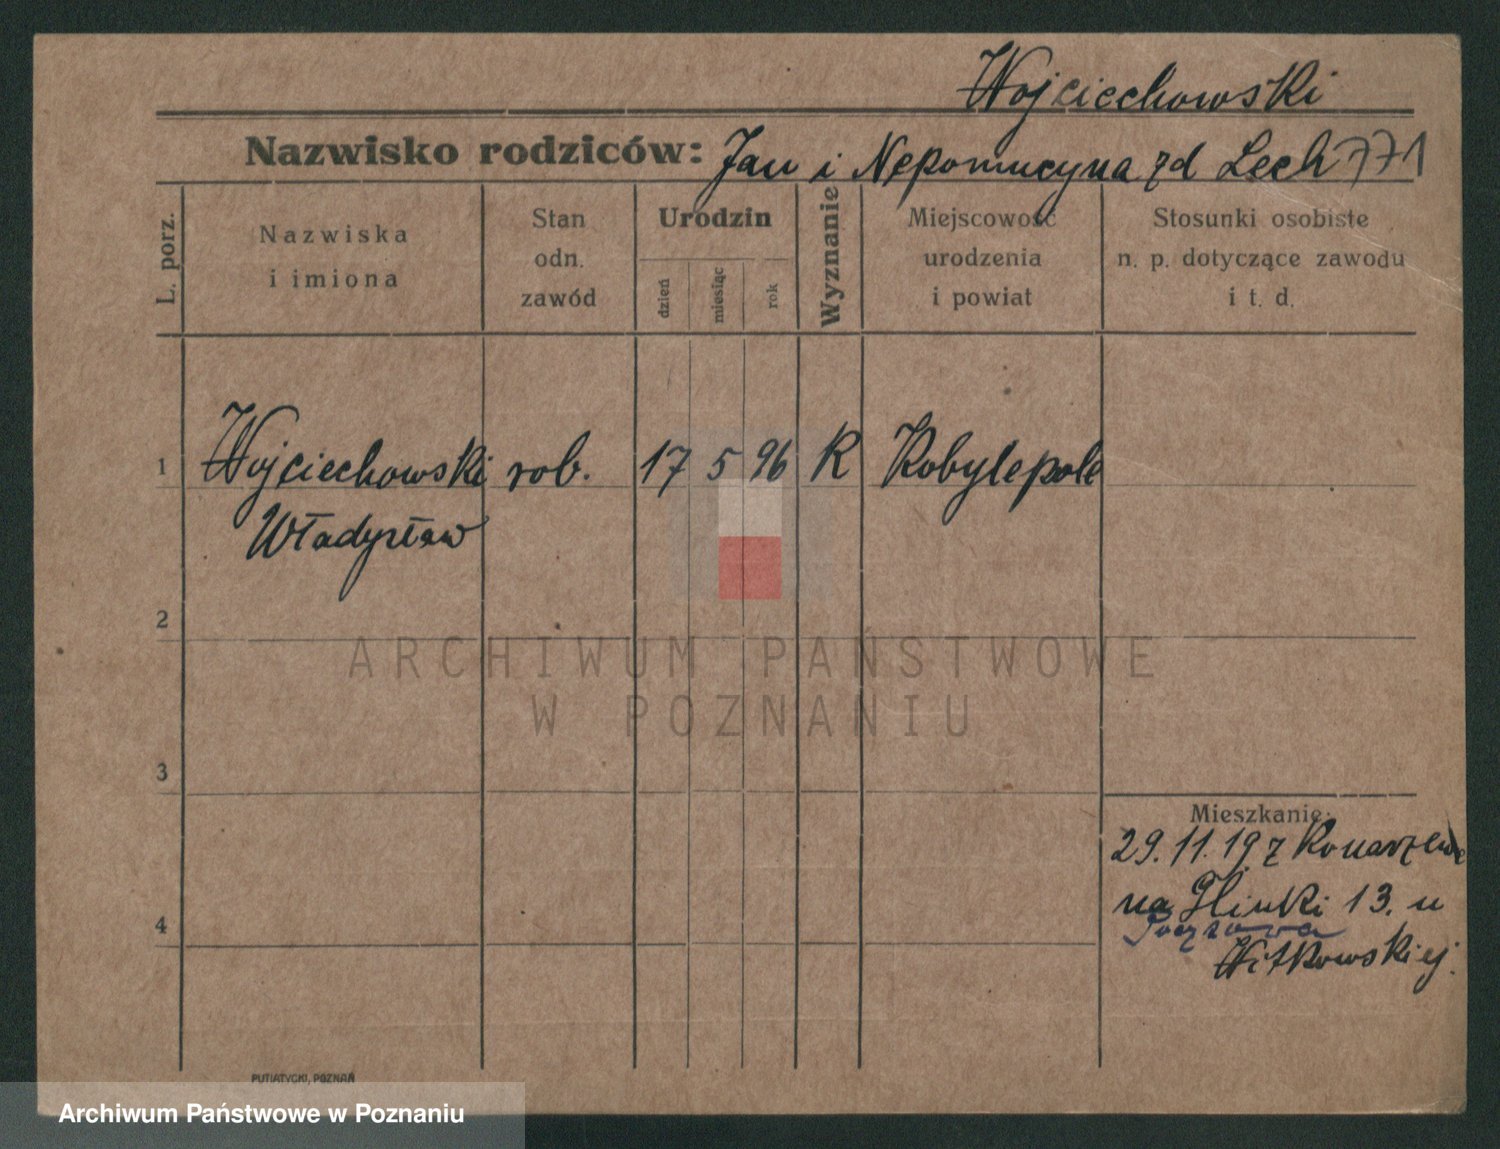 Wojciechowski
Nazwisko rodziców: Jan i Nepomucyna zd Lech 771
L. porz.
Nazwiska
i imiona
Stan
odn.
zawód
Urodzin
dzień
miesiąc
rok
Wyznanie
Miejscowość
urodzenia
i powiat
Stosunki osobiste
n. p. dotyczące zawodu
i t. d.
1 Wojciechowski rob. 17 5 96 K Kobylepole
Władysław
2
ARCHIWUM PAŃSTWOWE
W POZNANIU
3
Mieszkanie:
29.11.19 z Konarzewa
na Glinki 13. u
4
Witkowskiej.
PUTIATYCKI, POZNAŃ
Archiwum Państwowe w Poznaniu